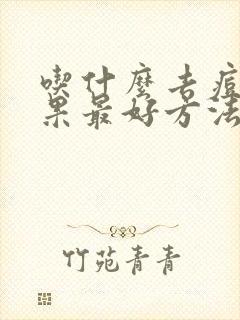 喫什麼去痘
果最好方法
竹苑青青